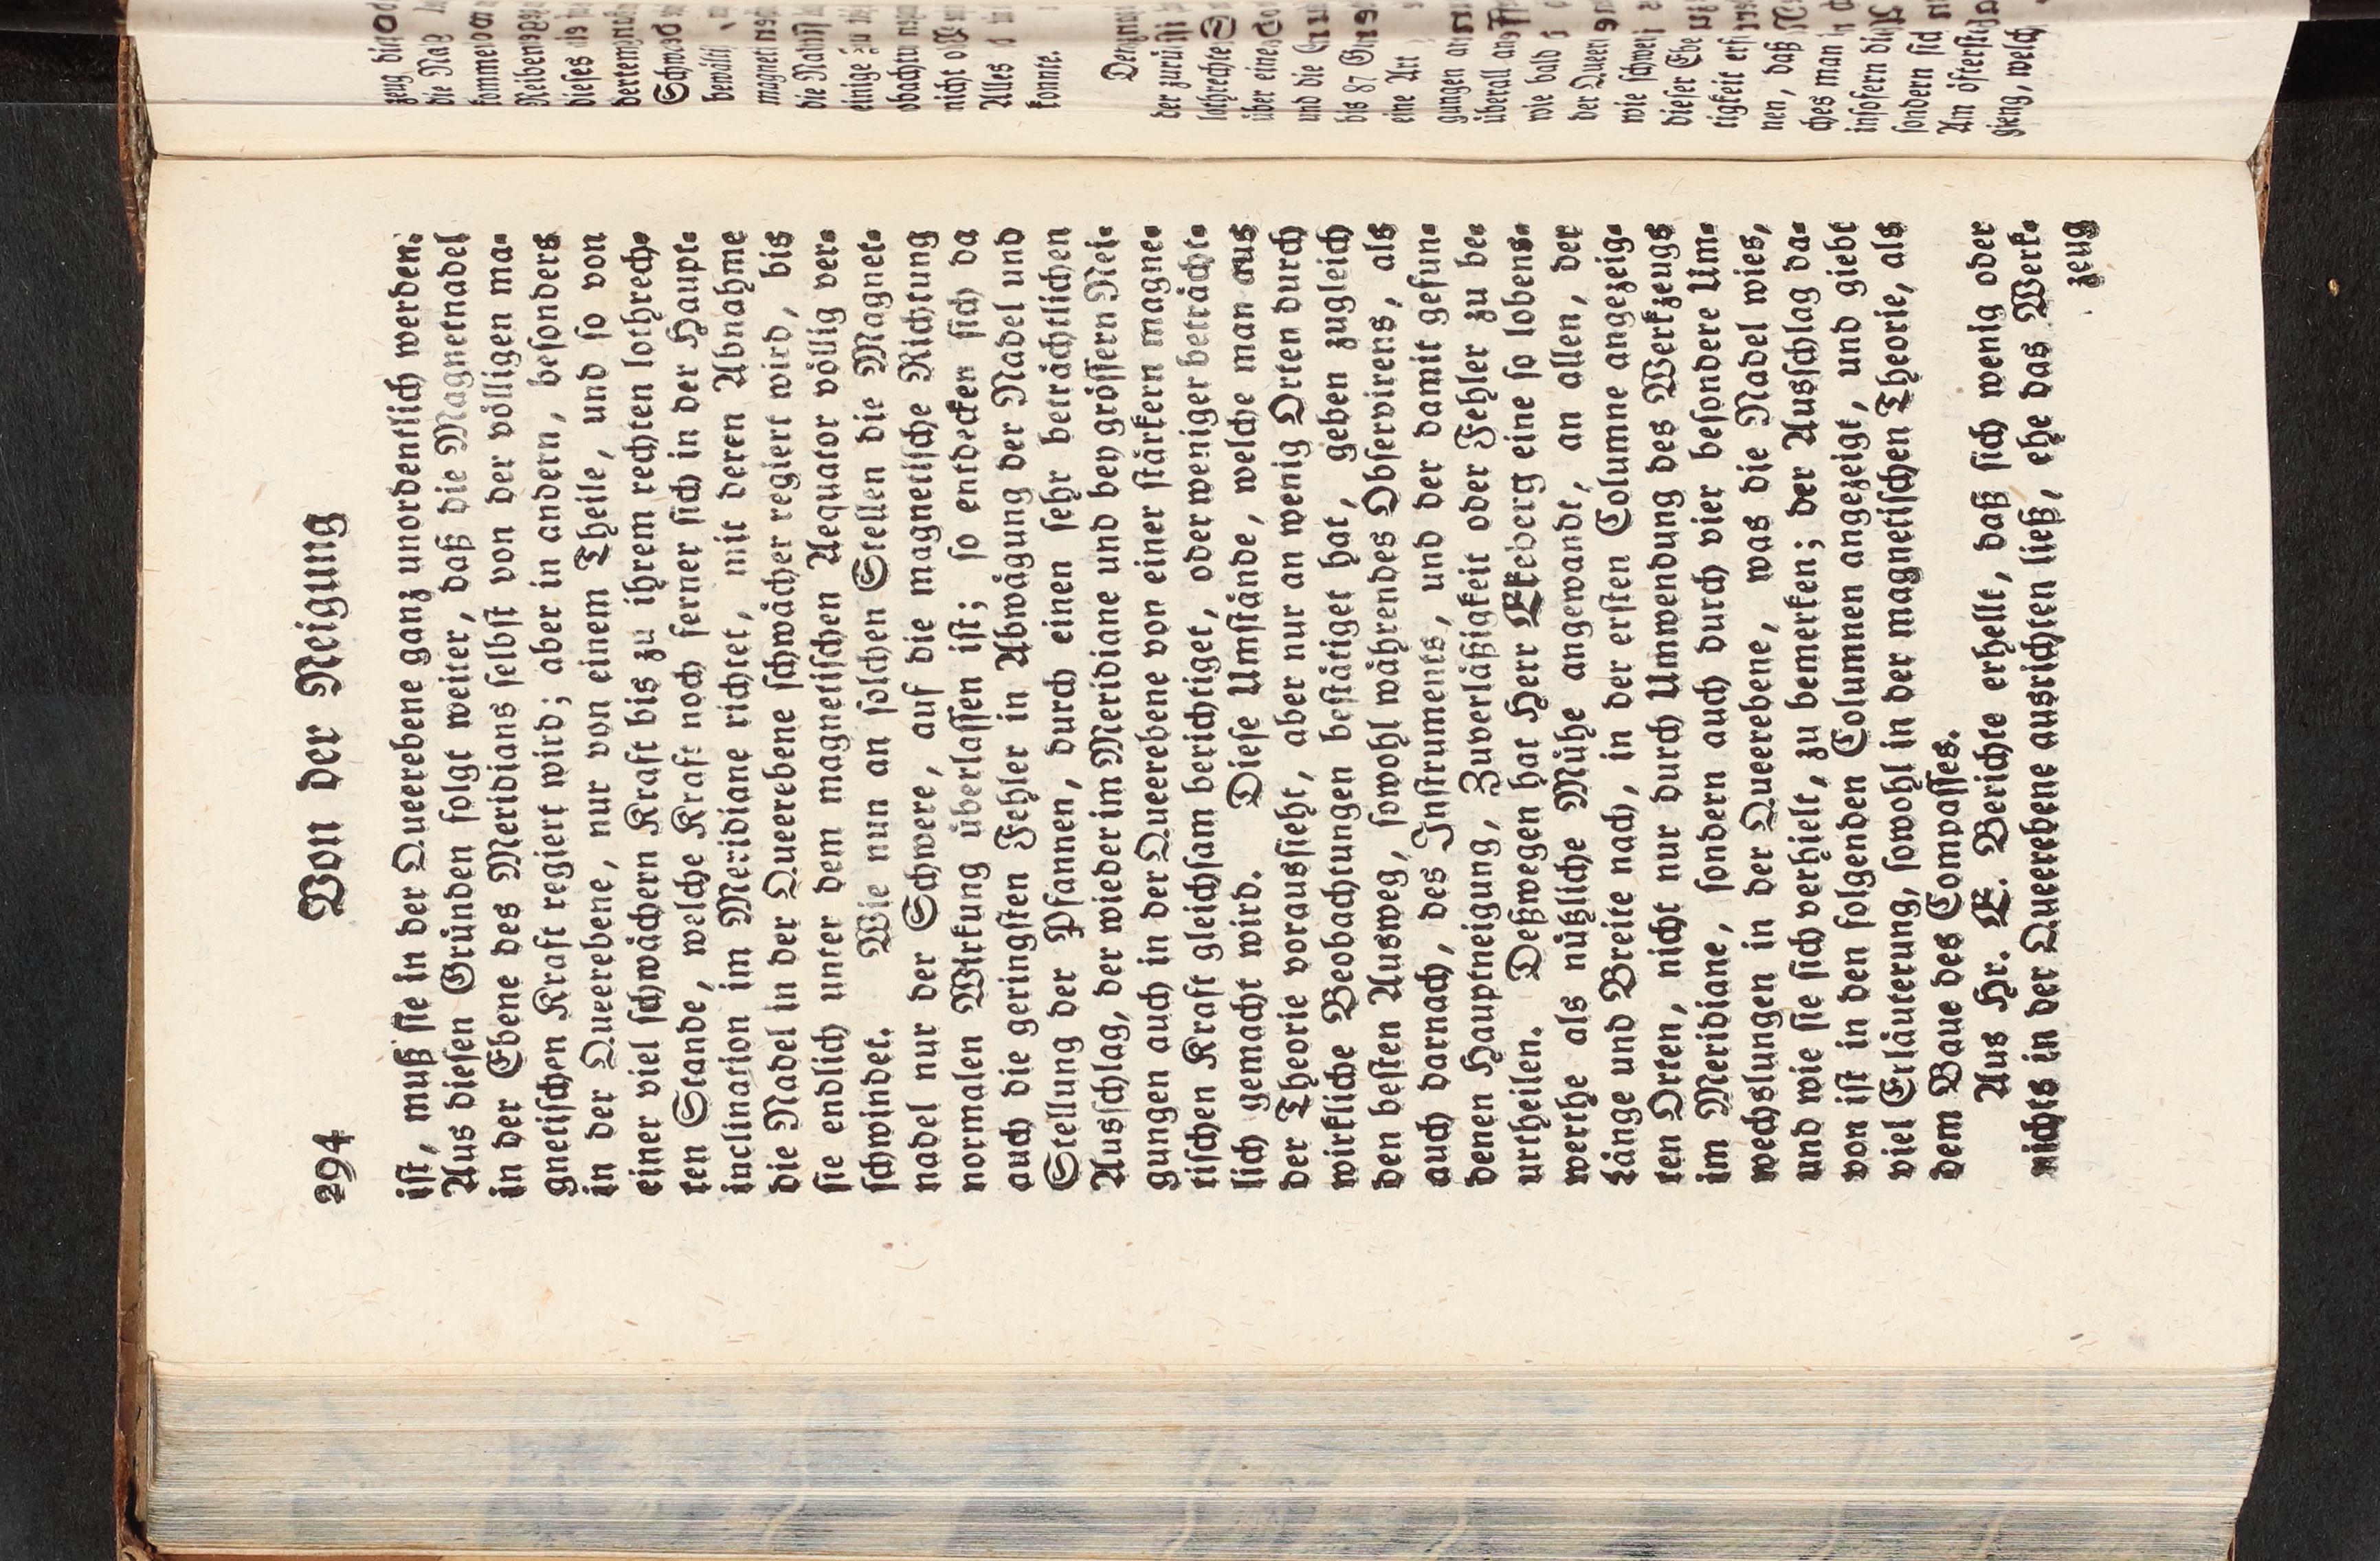 294 Von der Neigung
ist, muß sie in der Queerebene ganz unordentlich werden.
Aus diesen Gründen folgt weiter, daß die Magnetnadel
in der Ebene des Meridians selbst von der völligen ma-
gnetischen Kraft regiert wird; aber in andern, besonders
in der Queerebene, nur von einem Theile, und so von
einer viel schwächern Kraft bis zu ihrem rechten lothrech-
ten Stande, welche Kraft noch ferner sich in der Haupt-
inclination im Meridiane richtet, mit deren Abnahme
die Nadel in der Queerebene schwächer regiert wird, bis
sie endlich unter dem magnetischen Aequator völlig ver-
schwindet. Wie nun an solchen Stellen die Magnet-
nadel nur der Schwere, auf die magnetische Richtung
normalen Wirkung überlassen ist; so entdecken sich da
auch die geringsten Fehler in Abwägung der Nadel und
Stellung der Pfannen, durch einen sehr beträchtlichen
Ausschlag, der wieder im Meridiane und bey grössern Nei-
gungen auch in der Queerebene von einer stärkern magne-
tischen Kraft gleichsam berichtiget, oder weniger beträcht-
lich gemacht wird. Diese Umstände, welche man aus
der Theorie voraussieht, aber nur an wenig Orten durch
wirkliche Beobachtungen bestätiget hat, geben zugleich
den besten Ausweg, sowohl währendes Observirens, als
auch darnach, des Instruments, und der damit gefun-
denen Hauptneigung, Zuverläßigkeit oder Fehler zu be-
urtheilen. Deßwegen hat Herr Ekeberg eine so lobens-
werthe als nützliche Mühe angewandt, an allen, der
Länge und Breite nach, in der ersten Columne angezeig-
ten Orten, nicht nur durch Umwendung des Werkzeugs
im Meridiane, sondern auch durch vier besondere Um-
wechslungen in der Queerebene, was die Nadel wies,
und wie sie sich verhielt, zu bemerken; der Ausschlag da-
von ist in den folgenden Columnen angezeigt, und giebt
viel Erläuterung, sowohl in der magnetischen Theorie, als
dem Baue des Compasses.
Aus Hr. E. Berichte erhellt, daß sich wenig oder
nichts in der Queerebene ausrichten ließ, ehe das Werk-
zeug
zeug
die Na
kommel
Neiben
dieses
dertem
Schwed
bewälti
magnet
die Nad
einige zu
obachtu
nicht
Alles
konnte.
der zurü
lothrechte
über eine
und die
bis 87 G
eine Art
gungen
überall
wie bald
der Queer
wie schwer
dieser Ebe
tigkeit erf
nen, daß
ches man
insofern di
sondern sich
Am öftersten
gieng, welch